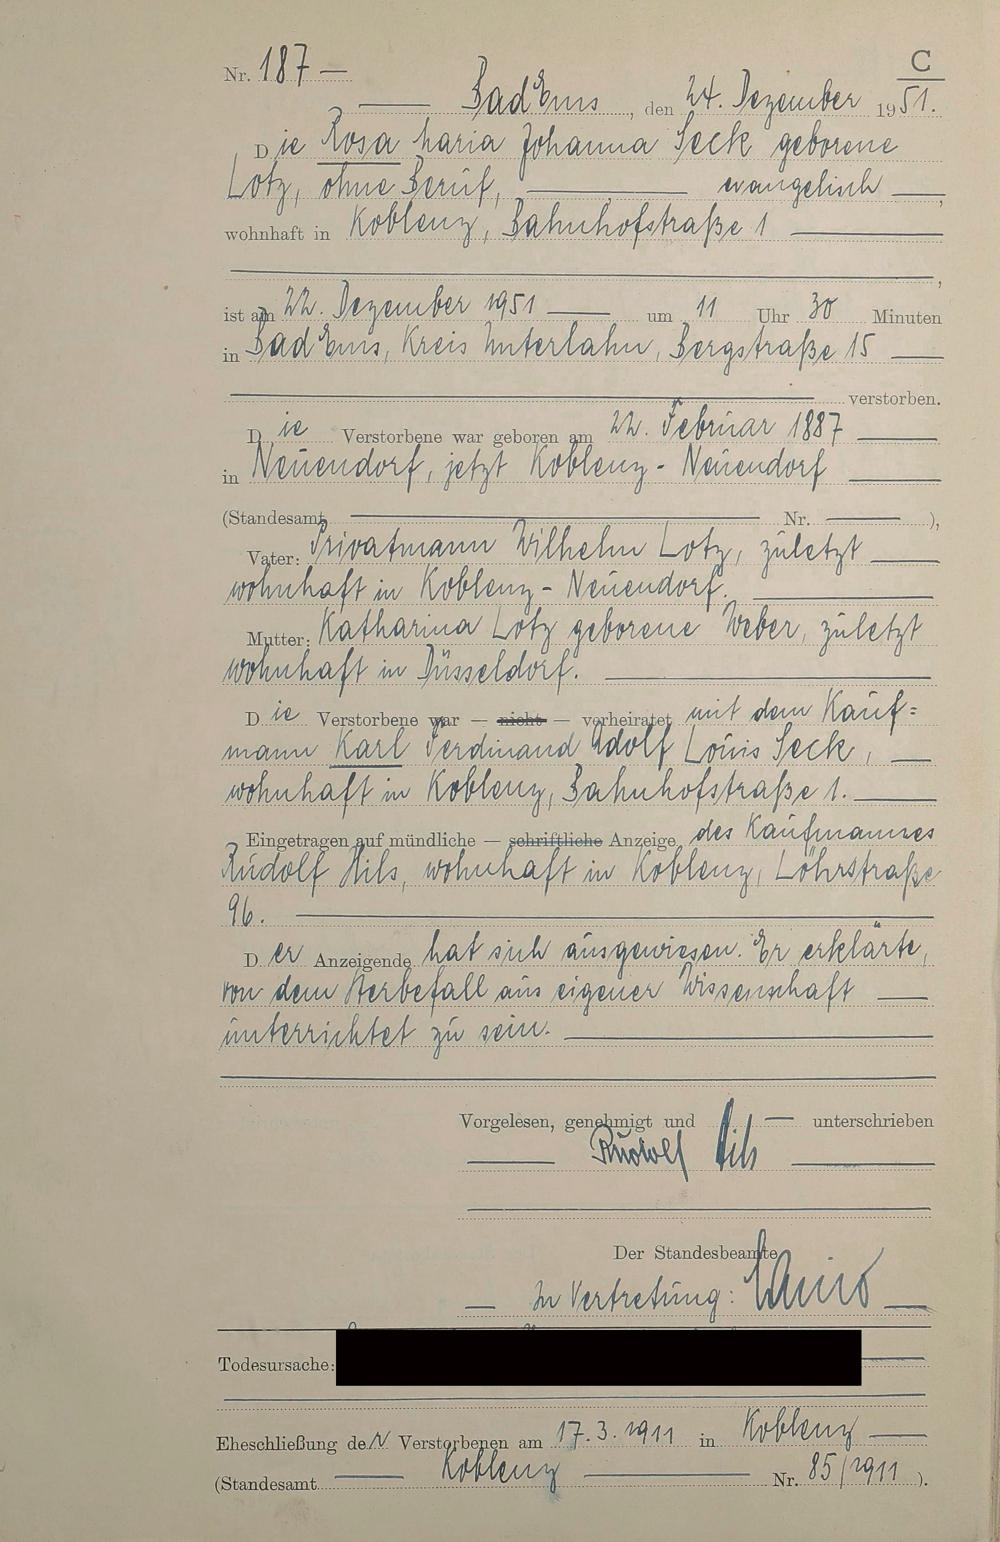 C
Nr. 187 —
Bad Ems, den 24. Dezember 1951.
Die Rosa Maria Johanna Seck geborene
Lotz, ohne Beruf, evangelisch,
wohnhaft in Koblenz, Bahnhofstraße 1
,
ist am 22. Dezember 1951 — um 11 Uhr 30 Minuten
in Bad Ems, Kreis Unterlahn, Bergstraße 15
verstorben.
Die Verstorbene war geboren am 22. Februar 1887
in Neuendorf, jetzt Koblenz - Neuendorf
(Standesamt — Nr. — ),
Vater: Privatmann Wilhelm Lotz, zuletzt
wohnhaft in Koblenz - Neuendorf.
Mutter: Katharina Lotz geborene Weber, zuletzt
wohnhaft in Düsseldorf.
Die Verstorbene war — nicht — verheiratet mit dem Kauf=
mann Karl Ferdinand Adolf Louis Seck,
wohnhaft in Koblenz, Bahnhofstraße 1.
Eingetragen auf mündliche — schriftliche Anzeige des Kaufmannes
Rudolf Hils, wohnhaft in Koblenz, Löhrstraße
96.
Der Anzeigende hat sich ausgewiesen. Er erklärte,
von dem Sterbefall aus eigener Wissenschaft
unterrichtet zu sein.
Vorgelesen, genehmigt und — unterschrieben
Rudolf Hils
Der Standesbeamte
In Vertretung:
Todesursache:
Eheschließung der Verstorbenen am 17.3.1911 in Koblenz
(Standesamt Koblenz Nr. 85/1911 ).